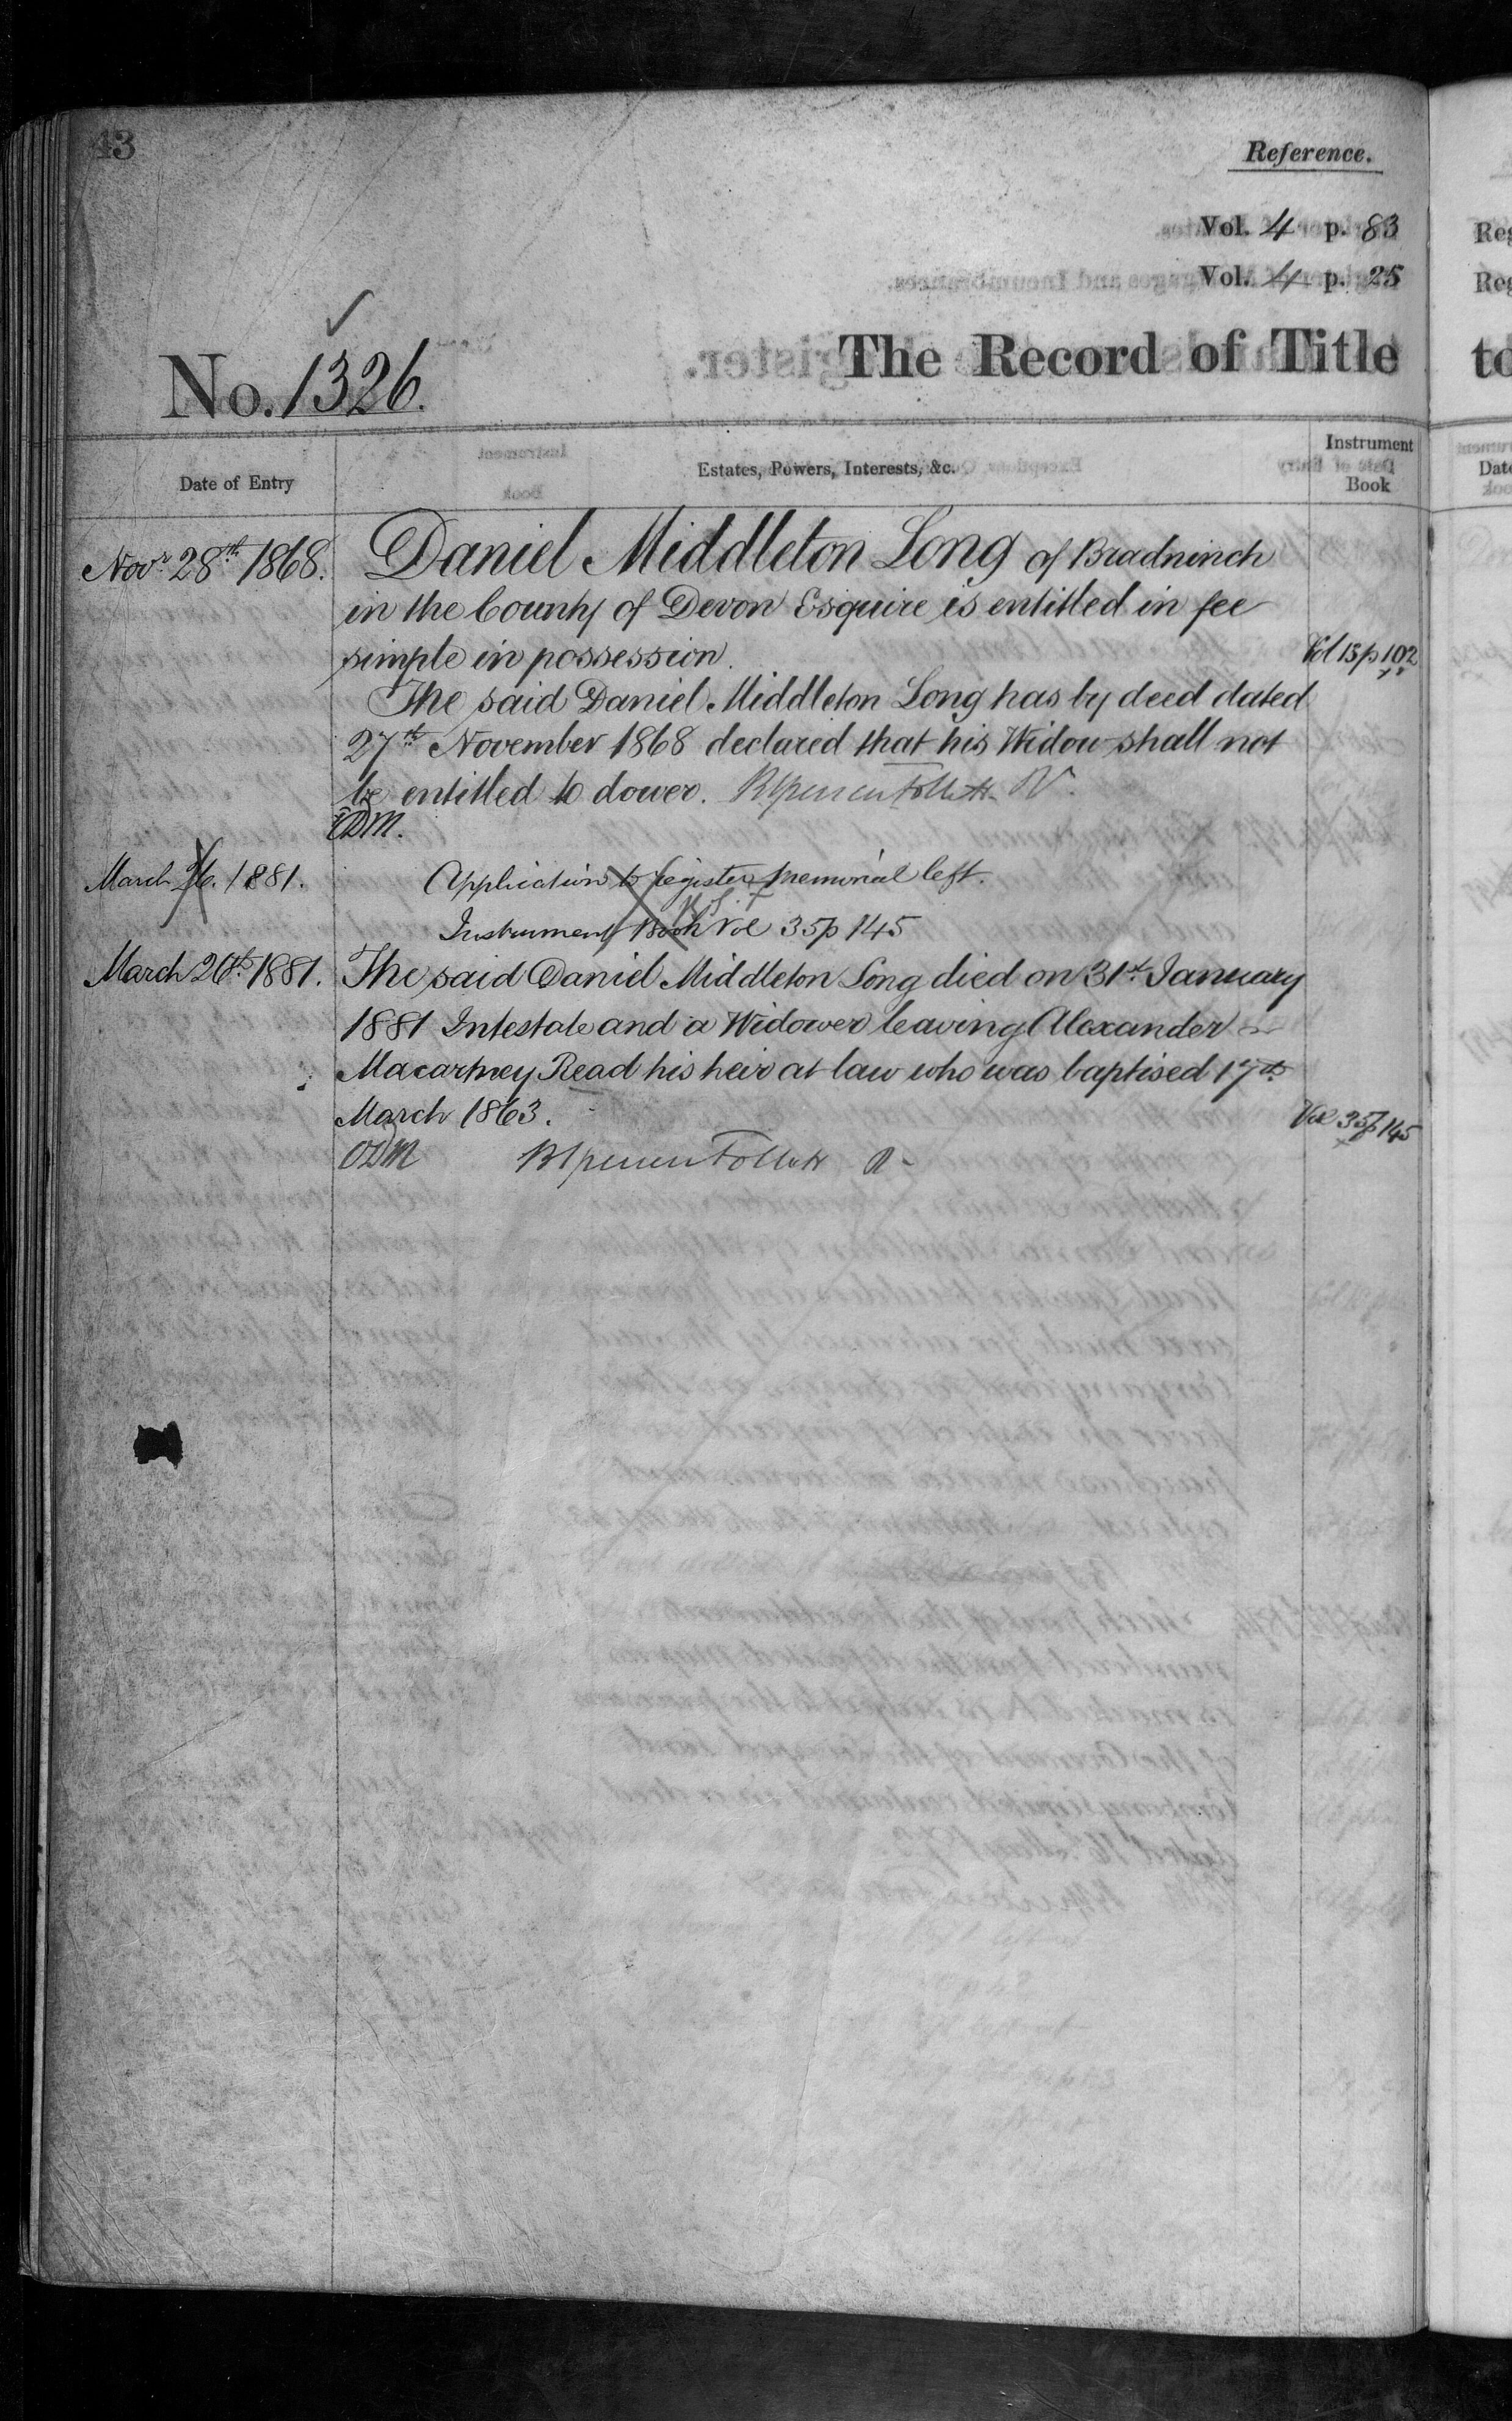 43
Reference.
Vol. 4 p. 83
Vol. 4 p. 25
No. 1326.
The Record of Title
Date of Entry
Estates, Powers, Interests, &c.
Instrument
Book
Novr 28th 1868.
Daniel Middleton Long of Bradninch
in the County of Devon Esquire is entitled in fee
simple in possession.
Vol 15 p 102
The said Daniel Middleton Long has by deed dated
27th November 1868 declared that his Widow shall not
be entitled to dower. BSpencer Follett R.
March 26. 1881.
Application to register memorial left.
Instrument Book Vol 35 p 145
March 26th 1881.
The said Daniel Middleton Long died on 31st January
1881 Intestate and a Widower leaving Alexander
Macartney Read his heir at law who was baptised 17th
March 1863.
Vol 35 p 145
ODM BSpencer Follett R
Reg
Reg
to
Date